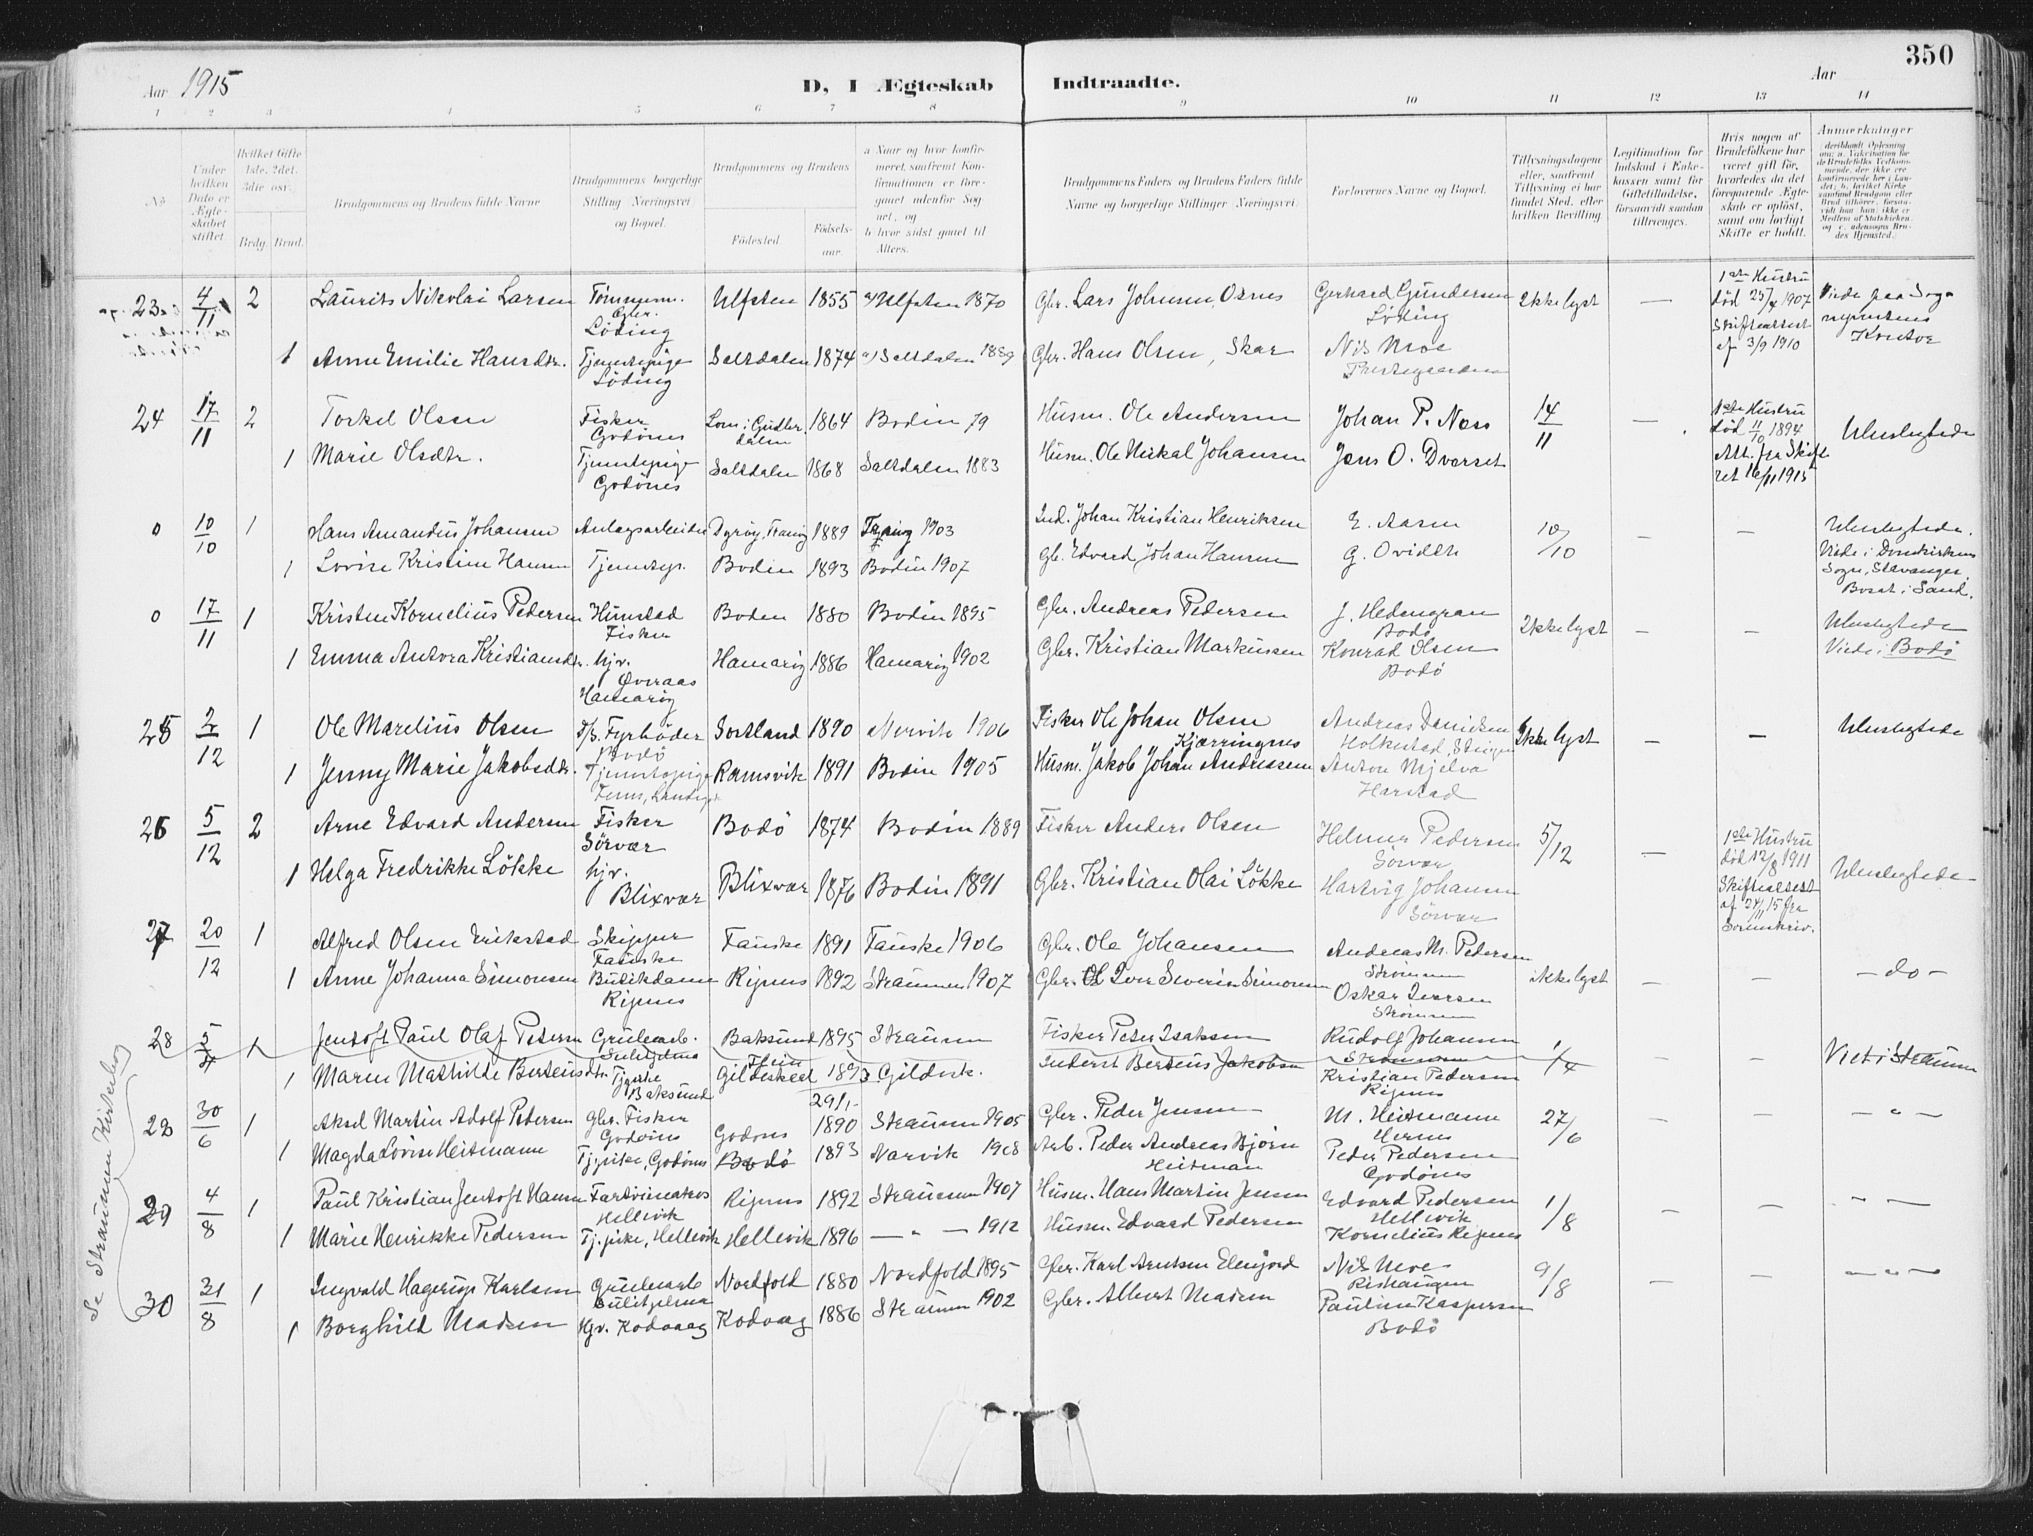 350
Aar 1915
D, I Ægteskab Indtraadte.
Aar
1 2 3 4 5 6 7 8 9 10 11 12 13 14
No
Under hvilken Dato er Ægteskabet stiftet.
Hvilket Gifte 1ste, 2det, 3die osv.
Brdg. Brud.
Brudgommens og Brudens fulde Navne
Brudgommens borgerlige Stilling Næringsvei og Bopæl.
Brudgommens og Brudens
Fødested.
Fødsels-aar.
a Naar og hvor konfirmeret, saafremt Konfirmationen er foregaaet udenfor Sognet, og
b hvor sidst gaaet til Alters.
Brudgommens Faders og Brudens Faders fulde Navne og borgerlige Stillinger Næringsvei.
Forlovernes Navne og Bopæl.
Tillysningsdagene eller, saafremt Tillysning ei har fundet Sted, efter hvilken Bevilling.
Legitimation for Indskud i Enkekassen samt for Giftetilladelse, forsaavidt saadan tiltrænges.
Hvis nogen af Brudefolkene har været gift før, hvorledes da det foregaaende Ægteskab er opløst, samt om lovligt Skifte er holdt.
Anmærkninger
23 4/11 2 Laurits Nikolai Larsen Tømmerm. Gbr. Löding Ulfsten 1855 a) Ulfsten 1870 Gbr. Lars Johnsen, Osnes Gerhard Gundersen Löding Ikke lyst — 1ste Hustru död 25/4 1907 Skifteattest af 3/9 1910 Viede paa Sognepræstens Kontor
1 Anne Emilie Hansdtr. Tjenestepige Löding Saltdalen 1874 a) Saltdalen 1889 Gbr. Hans Olsen, Skar Nils Moe
24 17/11 2 Torkel Olsen Fisker Godönes Lom i Gudbr.dalen 1864 Bodin 79 Husm. Ole Andersen Johan P. Næss 14/11 — 1ste Hustru död 11/10 1894 Att. fra Skifteret 16/11 1915 Ubeslægtede
1 Marie Olsdtr. Tjenestepige Godönes Saltdalen 1868 Saltdalen 1883 Husm. Ole Mikal Johansen Jens O. Dverset
0 10/10 1 Hans Amandus Johansen Anlægsarbeider Dyröy, Tranöy 1889 Tranöy 1903 Ind. Johan Kristian Henriksen E. Aasen 10/10 — — Ubeslegtede. Viede i Domkirkens Sogn, Stavanger, Bosat i Sand.
1 Lovise Kristine Hansen Tjenestep. Bodin 1893 Bodin 1907 gb. Edvard Johan Hansen G. Ovidth
0 17/11 1 Kristen Kornelius Pedersen Hunstad Fisker Boden 1880 Bodin 1895 Gbr. Andreas Pedersen J. Hedengran Bodö Ikke lyst — — Ubeslegtede Viede i Bodö
1 Emma Antora Kristiansdtr. hjv. Overaas Hamaröy Hamaröy 1886 Hamaröy 1902 Gbr. Kristian Markussen Konrad Olsen Bodö
25 2/12 1 Ole Marelius Olsen D/S. Fyrböder Bodö Sortland 1890 Narvik 1906 Fisker Ole Johan Olsen Kjærringnes Andreas Danielsen Holkestad, Steigen Ikke lyst — — Ubeslegtede
1 Jenny Marie Jakobsdtr. Tjenestepige Ramsvik 1891 Bodin 1905 Husm. Jakob Johan Andreasen Anton Mjelva Harstad
26 5/12 2 Arne Edvard Andersen Fisker Sörvær Bodö 1874 Bodin 1889 Fisker Anders Olsen Helmer Pedersen Sörvær 5/12 — 1ste Hustru död 12/8 1911 Skifteattest af 24/11 15 fra Sorenskriv. Ubeslegtede
1 Helga Fredrikke Lökke hjv. Blixvær Blixvær 1876 Bodin 1891 Gbr. Kristian Olai Lökke Hartvig Johansen Sörvær
27 20/12 1 Alfred Olsen Erikstad Skipper Fauske Fauske 1891 Fauske 1906 Gbr. Ole Johansen Andreas M. Pedersen Strömmen ikke lyst — — — do —
1 Anne Johanna Simonsen Butikdame Ripnes Ripnes 1892 Straumen 1907 Gbr. Iver Severin Simonsen Oskar Iversen Strömmen
Se Straumen Kirkebog
28 5/4 1 Jentoft Paul Olaf Petersen Grubearb. Sulitjelma Baksund 1895 Straumen Fisker Peter Isaksen Rudolf Johansen Strömmen 1/4 — — Viet i Straumen
1 Maren Mathilde Berteusdtr. Tjpike Baksund Gildeskaal 1893 Gildesk. Inderst Berteus Jakobsen Kristian Pedersen Ripnes
29/1-
28 30/6 1 Aksel Martin Adolf Pedersen Gbr. Fisker Godönes Godönes 1890 Straumen 1905 Gbr. Peder Jensen M. Heitmann Hernes 27/6 — — — " —
1 Magda Lovise Heitmann Tjpike, Godönes Bodö 1893 Narvik 1908 Arb. Peder Andreas Bjørn Heitman Peder Pedersen Godönes
29 4/8 1 Paul Kristian Jentoft Hansen Fartöimatros Hellevik Ripnes 1892 Straumen 1907 Husm. Hans Martin Jensen Edvard Pedersen Hellevik 1/8 — — — " —
1 Marie Henrikke Pedersen Tj.pike, Hellevik Hellevik 1896 — " — 1912 Husm. Edvard Pedersen Kornelius Ripnes
30 31/8 1 Ingvald Hagerup Karlsen Grubearb Sulitjelma Nordfold 1880 Nordfold 1895 Gbr. Karl Arntsen Elvfjord Nils Moe Rishaugen 9/8 — — — " —
1 Borghild Madsen Hjv. Kodvaag Kodvaag 1886 Straumen 1902 Gbr. Albert Madsen Pauline Kaspersen Bodö